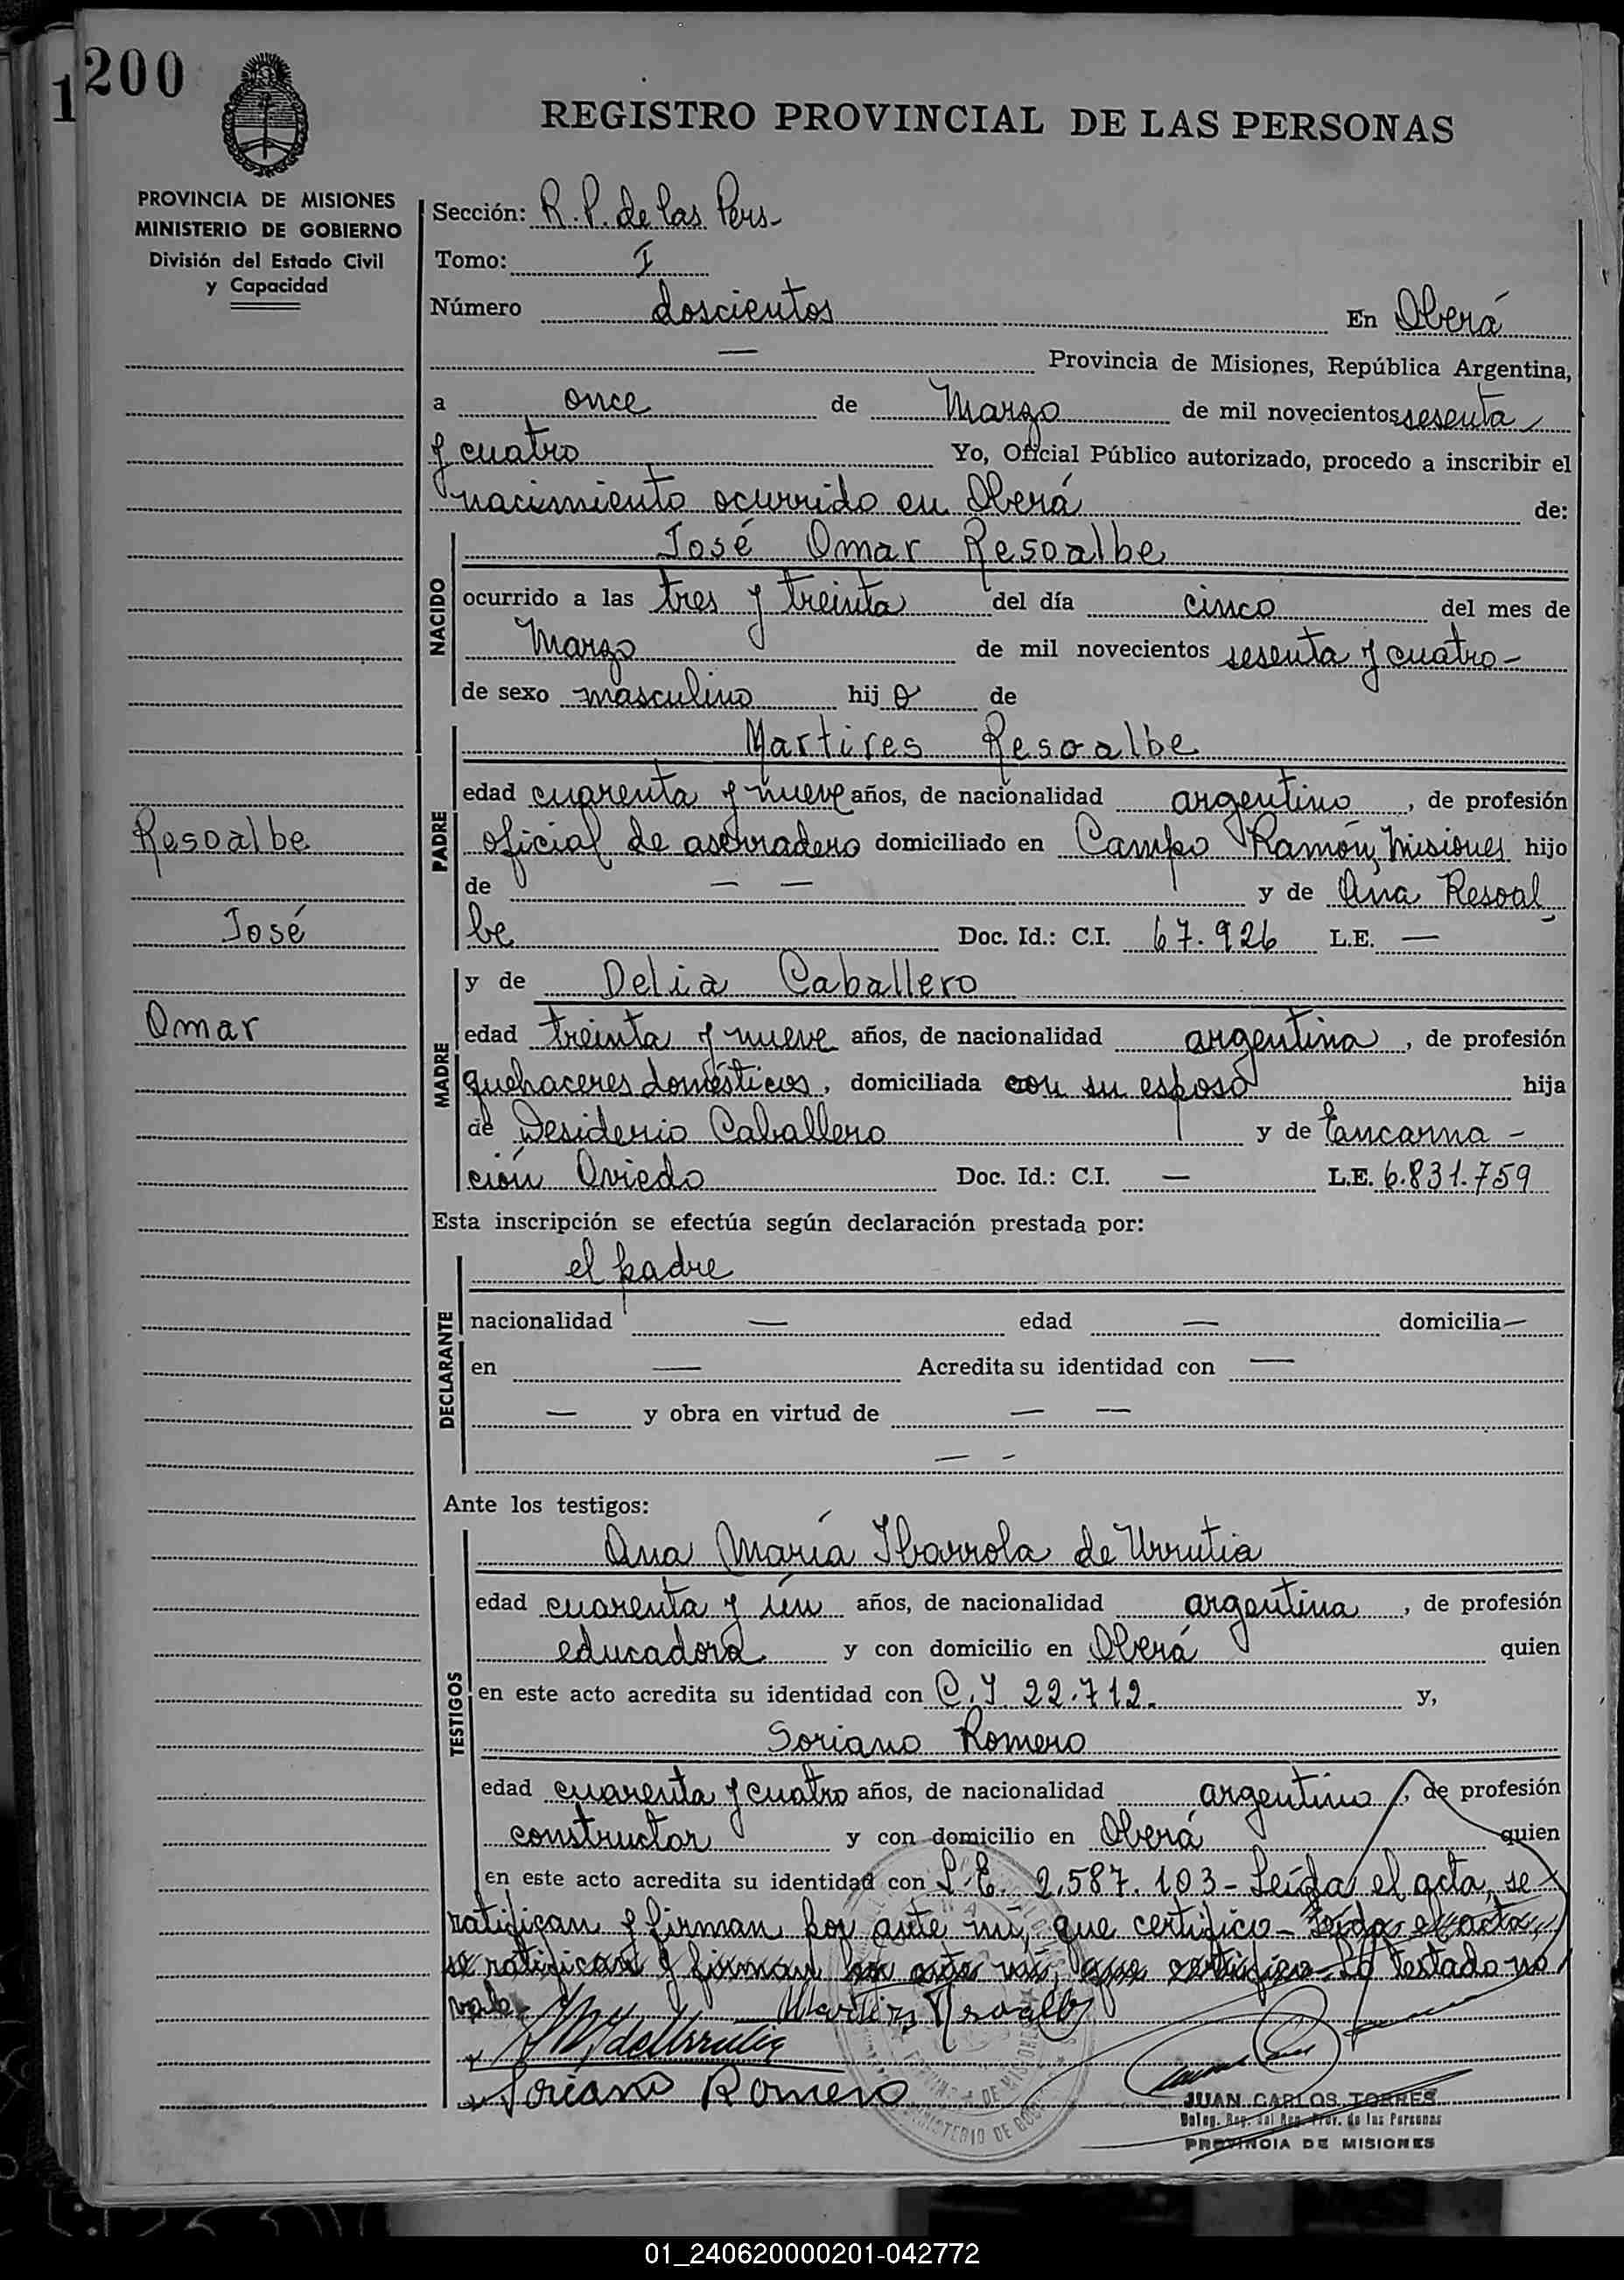 200
1
REGISTRO PROVINCIAL DE LAS PERSONAS
PROVINCIA DE MISIONES
MINISTERIO DE GOBIERNO
División del Estado Civil
y Capacidad
Sección: R.P. de las Pers-
Tomo: I
Número doscientos En Oberá
— Provincia de Misiones, República Argentina,
a once de Marzo de mil novecientos sesenta
y cuatro Yo, Oficial Público autorizado, procedo a inscribir el
nacimiento ocurrido en Oberá de:
NACIDO
José Omar Resoalbe
ocurrido a las tres y treinta del día cinco del mes de
Marzo de mil novecientos sesenta y cuatro-
de sexo masculino hijo de
PADRE
Martires Resoalbe
edad cuarenta y nueve años, de nacionalidad argentino, de profesión
oficial de aserradero domiciliado en Campo Ramón, Misiones hijo
de — — y de Ana Resoal
be Doc. Id.: C.I. 67.926 L.E. —
Resoalbe
José
Omar
MADRE
y de Delia Caballero
edad treinta y nueve años, de nacionalidad argentina, de profesión
quehaceres domésticos, domiciliada con su esposo hija
de Desiderio Caballero y de Encarna-
ción Oviedo Doc. Id.: C.I. — L.E. 6.831.759
Esta inscripción se efectúa según declaración prestada por:
DECLARANTE
el padre
nacionalidad — edad — domicilia—
en — Acredita su identidad con —
— y obra en virtud de — —
— -
Ante los testigos:
TESTIGOS
Ana María Ibarrola de Urrutia
edad cuarenta y un años, de nacionalidad argentina, de profesión
educadora y con domicilio en Oberá quien
en este acto acredita su identidad con C.I 22.712. y,
Soriano Romero
edad cuarenta y cuatro años, de nacionalidad argentino, de profesión
constructor y con domicilio en Oberá quien
en este acto acredita su identidad con L.E. 2.587.103- Leída el acta, se
ratifican y firman por ante mí, que certifico- Leída el acta,
se ratifican y firman por ante mí, que certifico- Lo testado no
vale-
Soriano Romero
JUAN CARLOS TORRES
Deleg. Reg. del Reg. Prov. de las Personas
PROVINCIA DE MISIONES
01_240620000201-042772